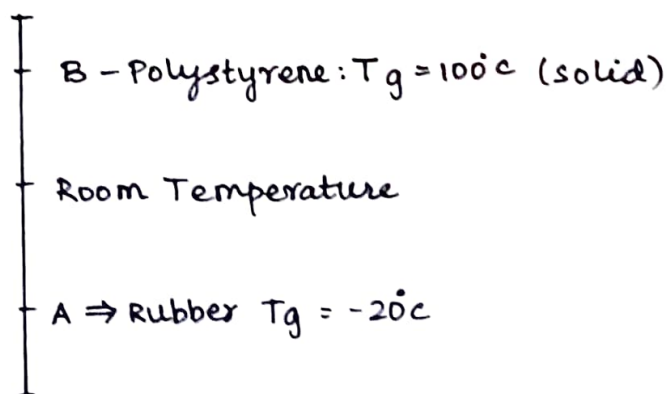 B - Polystyrene: Tg = 100°c (solid)
Room Temperature
A ⇒ Rubber Tg = -20°c